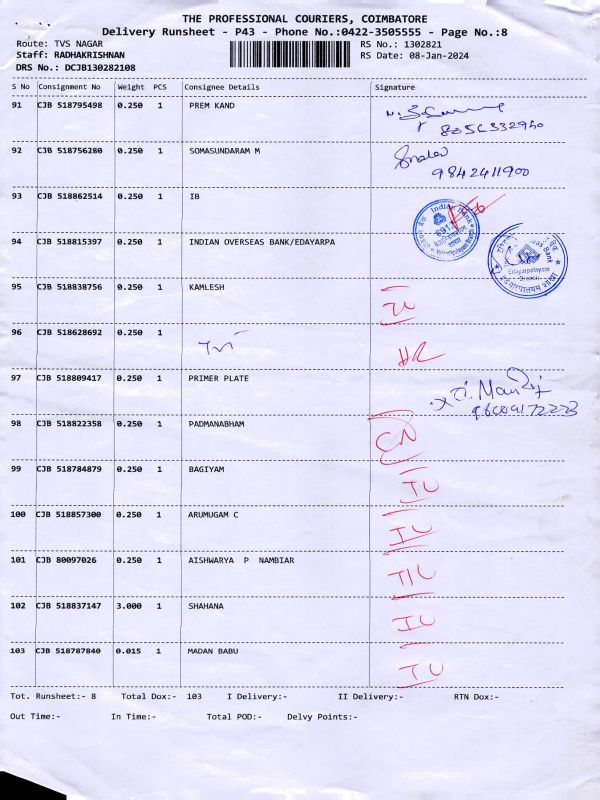 THE PROFESSIONAL COURIERS, COIMBATORE
Delivery Runsheet - P43 - Phone No.:0422-3505555 - Page No.:8
Route: TVS NAGAR RS No.: 1302821
Staff: RADHAKRISHNAN RS Date: 08-Jan-2024
DRS No.: DCJB130282108
S No Consignment No Weight PCS Consignee Details Signature
91 CJB 518795498 0.250 1 PREM KAND
8056332940
92 CJB 518756280 0.250 1 SOMASUNDARAM M
9842411900
93 CJB 518862514 0.250 1 IB
94 CJB 518815397 0.250 1 INDIAN OVERSEAS BANK/EDAYARPA
Edayarpalayam
Branch
95 CJB 518838756 0.250 1 KAMLESH
96 CJB 518628692 0.250 1
97 CJB 518809417 0.250 1 PRIMER PLATE
98 CJB 518822358 0.250 1 PADMANABHAM
99 CJB 518784879 0.250 1 BAGIYAM IU
100 CJB 518857300 0.250 1 ARUMUGAM C IU
101 CJB 80097026 0.250 1 AISHWARYA P NAMBIAR
102 CJB 518837147 3.000 1 SHAHANA IU
103 CJB 518787840 0.015 1 MADAN BABU IU
Tot. Runsheet:- 8 Total Dox:- 103 I Delivery:- II Delivery:- RTN Dox:-
Out Time:- In Time:- Total POD:- Delvy Points:-